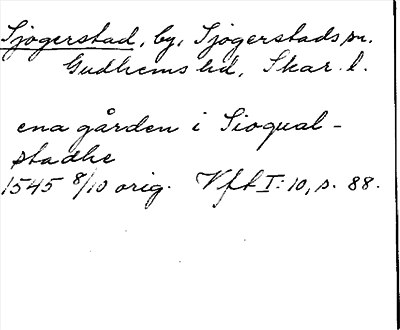 Sjogerstad, by, Sjogerstads sn.
Gudhems hd, Skar. l.
ena gården i Sioqual-
stadhe
1545 8/10 orig. Vft I: 10, s. 88.